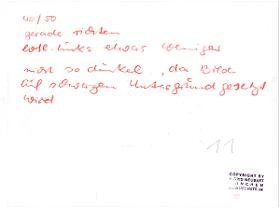 40/50
gerade richten
evtl. links etwas weniger
nicht so dunkel, da Bild
auf schwarzen Untergrund gesetzt
wird
11
COPYRIGHT BY